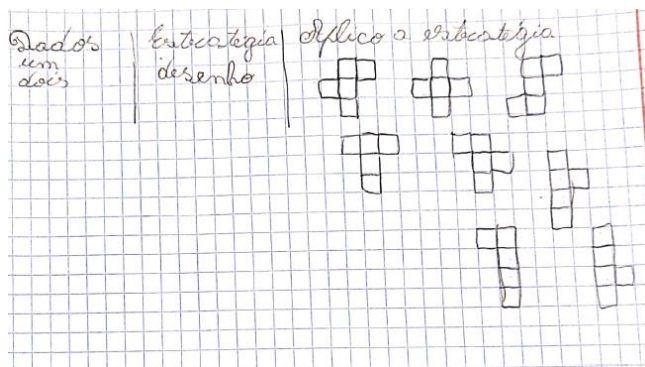 Dados
um
dois
Estratégia
desenho
Aplico a estratégia